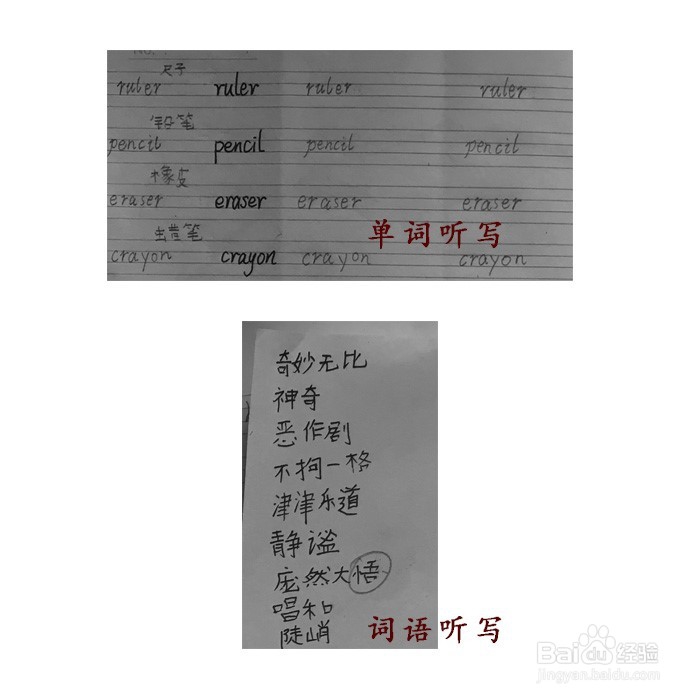 No.
尺子
ruler ruler ruler ruler
铅笔
pencil pencil pencil pencil
橡皮
eraser eraser eraser eraser
蜡笔
crayon crayon crayon crayon
单词听写
奇妙无比
神奇
恶作剧
不拘一格
津津乐道
静谧
庞然大悟
唱和
陡峭
词语听写
Baidu 经验
jingyan.baidu.com